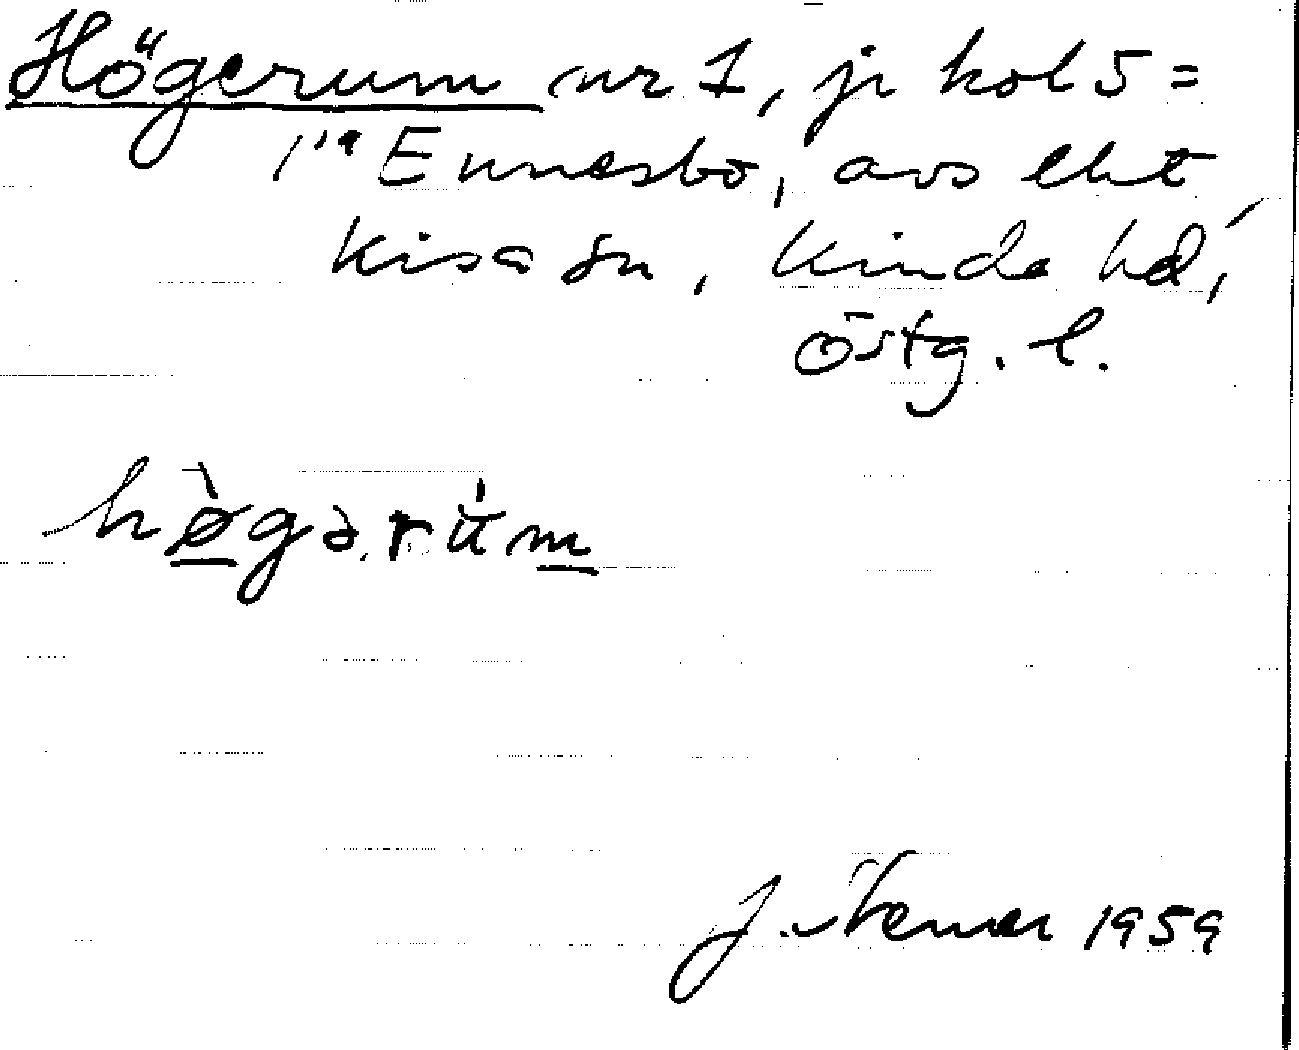 Högerum nr 1, jr kol 5 =
1/1 Ennesbo, avs ebt
Kisa sn, Kinda hd,
Östg. l.
hø̀gərùm
J. 1959